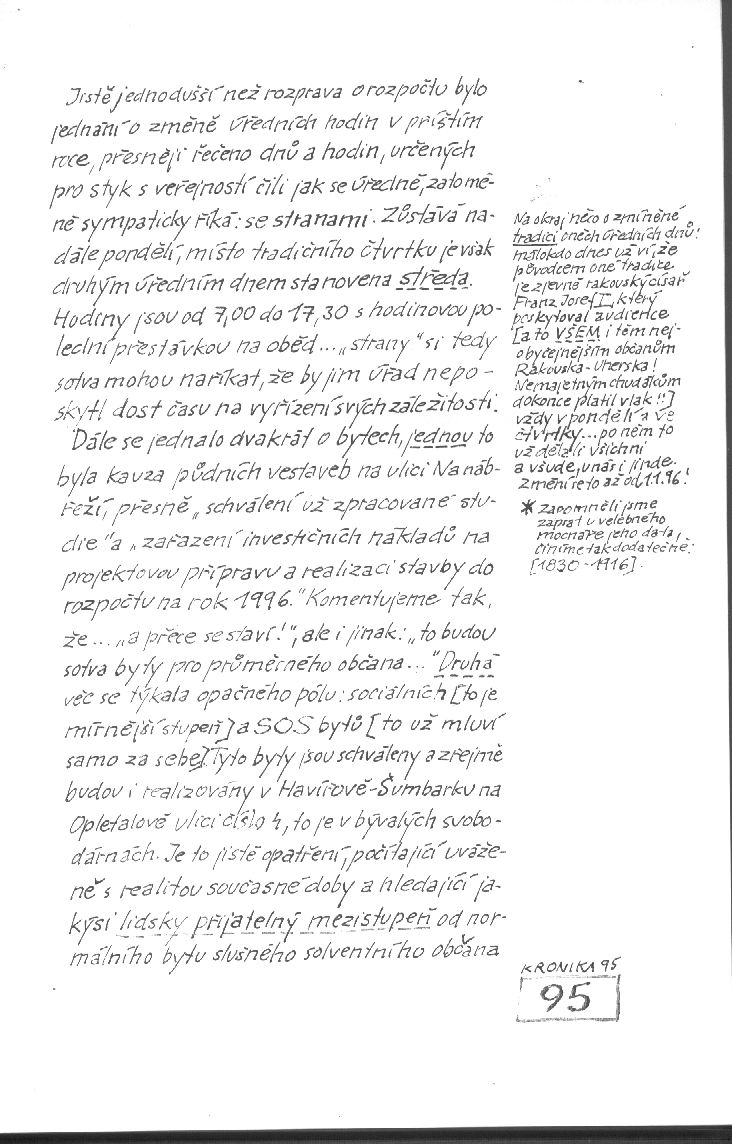 Jistě jednodušší než rozprava o rozpočtu bylo
jednání o změně úředních hodin v příštím
roce, přesněji řečeno dnů a hodin, určených
pro styk s veřejností čili jak se úředně, zato mé-
ně sympaticky říká: se stranami. Zůstává na-
dále pondělí, místo tradičního čtvrtku je však
druhým úředním dnem stanovena středa.
Hodiny jsou od 7,00 do 17,30 s hodinovou po-
lední přestávkou na oběd... „strany" si tedy
sotva mohou naříkat, že by jim úřad nepo-
skytl dost času na vyřízení svých záležitostí.
Dále se jednalo dvakrát o bytech, jednou to
byla kauza půdních vestaveb na ulici Na náb-
řeží, přesně „schválení už zpracované stu-
die" a „zařazení investičních nákladů na
projektovou přípravu a realizaci stavby do
rozpočtu na rok 1996." Komentujeme tak,
že... „a přece se staví!", ale i jinak: „to budou
sotva byty pro průměrného občana..." Druhá
věc se týkala opačného pólu: sociálních [to je
mírnější stupeň] a SOS bytů [to už mluví
samo za sebe]. Tyto byty jsou schváleny a zřejmě
budou i realizovány v Havířově-Šumbarku na
Opletalově ulici číslo 4, to je v bývalých svobo-
dárnách. Je to jistě opatření, počítající uváže-
ně s realitou současné doby a hledající ja-
kýsi lidsky přijatelný mezistupeň od nor-
málního bytu slušného solventního občana
Na okraj něco o zmíněné
tradici oněch úředních dnů!
málokdo dnes už ví, že
původcem oné tradice
je zjevně rakouský císař
Franz Josef I., který
poskytoval audience
[a to VŠEM i těm nej-
obyčejnějším občanům
Rakouska-Uherska!
Nemajetným chudákům
dokonce platil vlak!!]
vždy v pondělí a ve
čtvrtky... po něm to
už dělali všichni
a všude, u nás i jinde.
Změní se to až od 1.1.96!
* Zapomněli jsme
zapsat u velebného
mocnáře jeho data,
činíme tak dodatečně:
[1830-1916].
KRONIKA 95
95